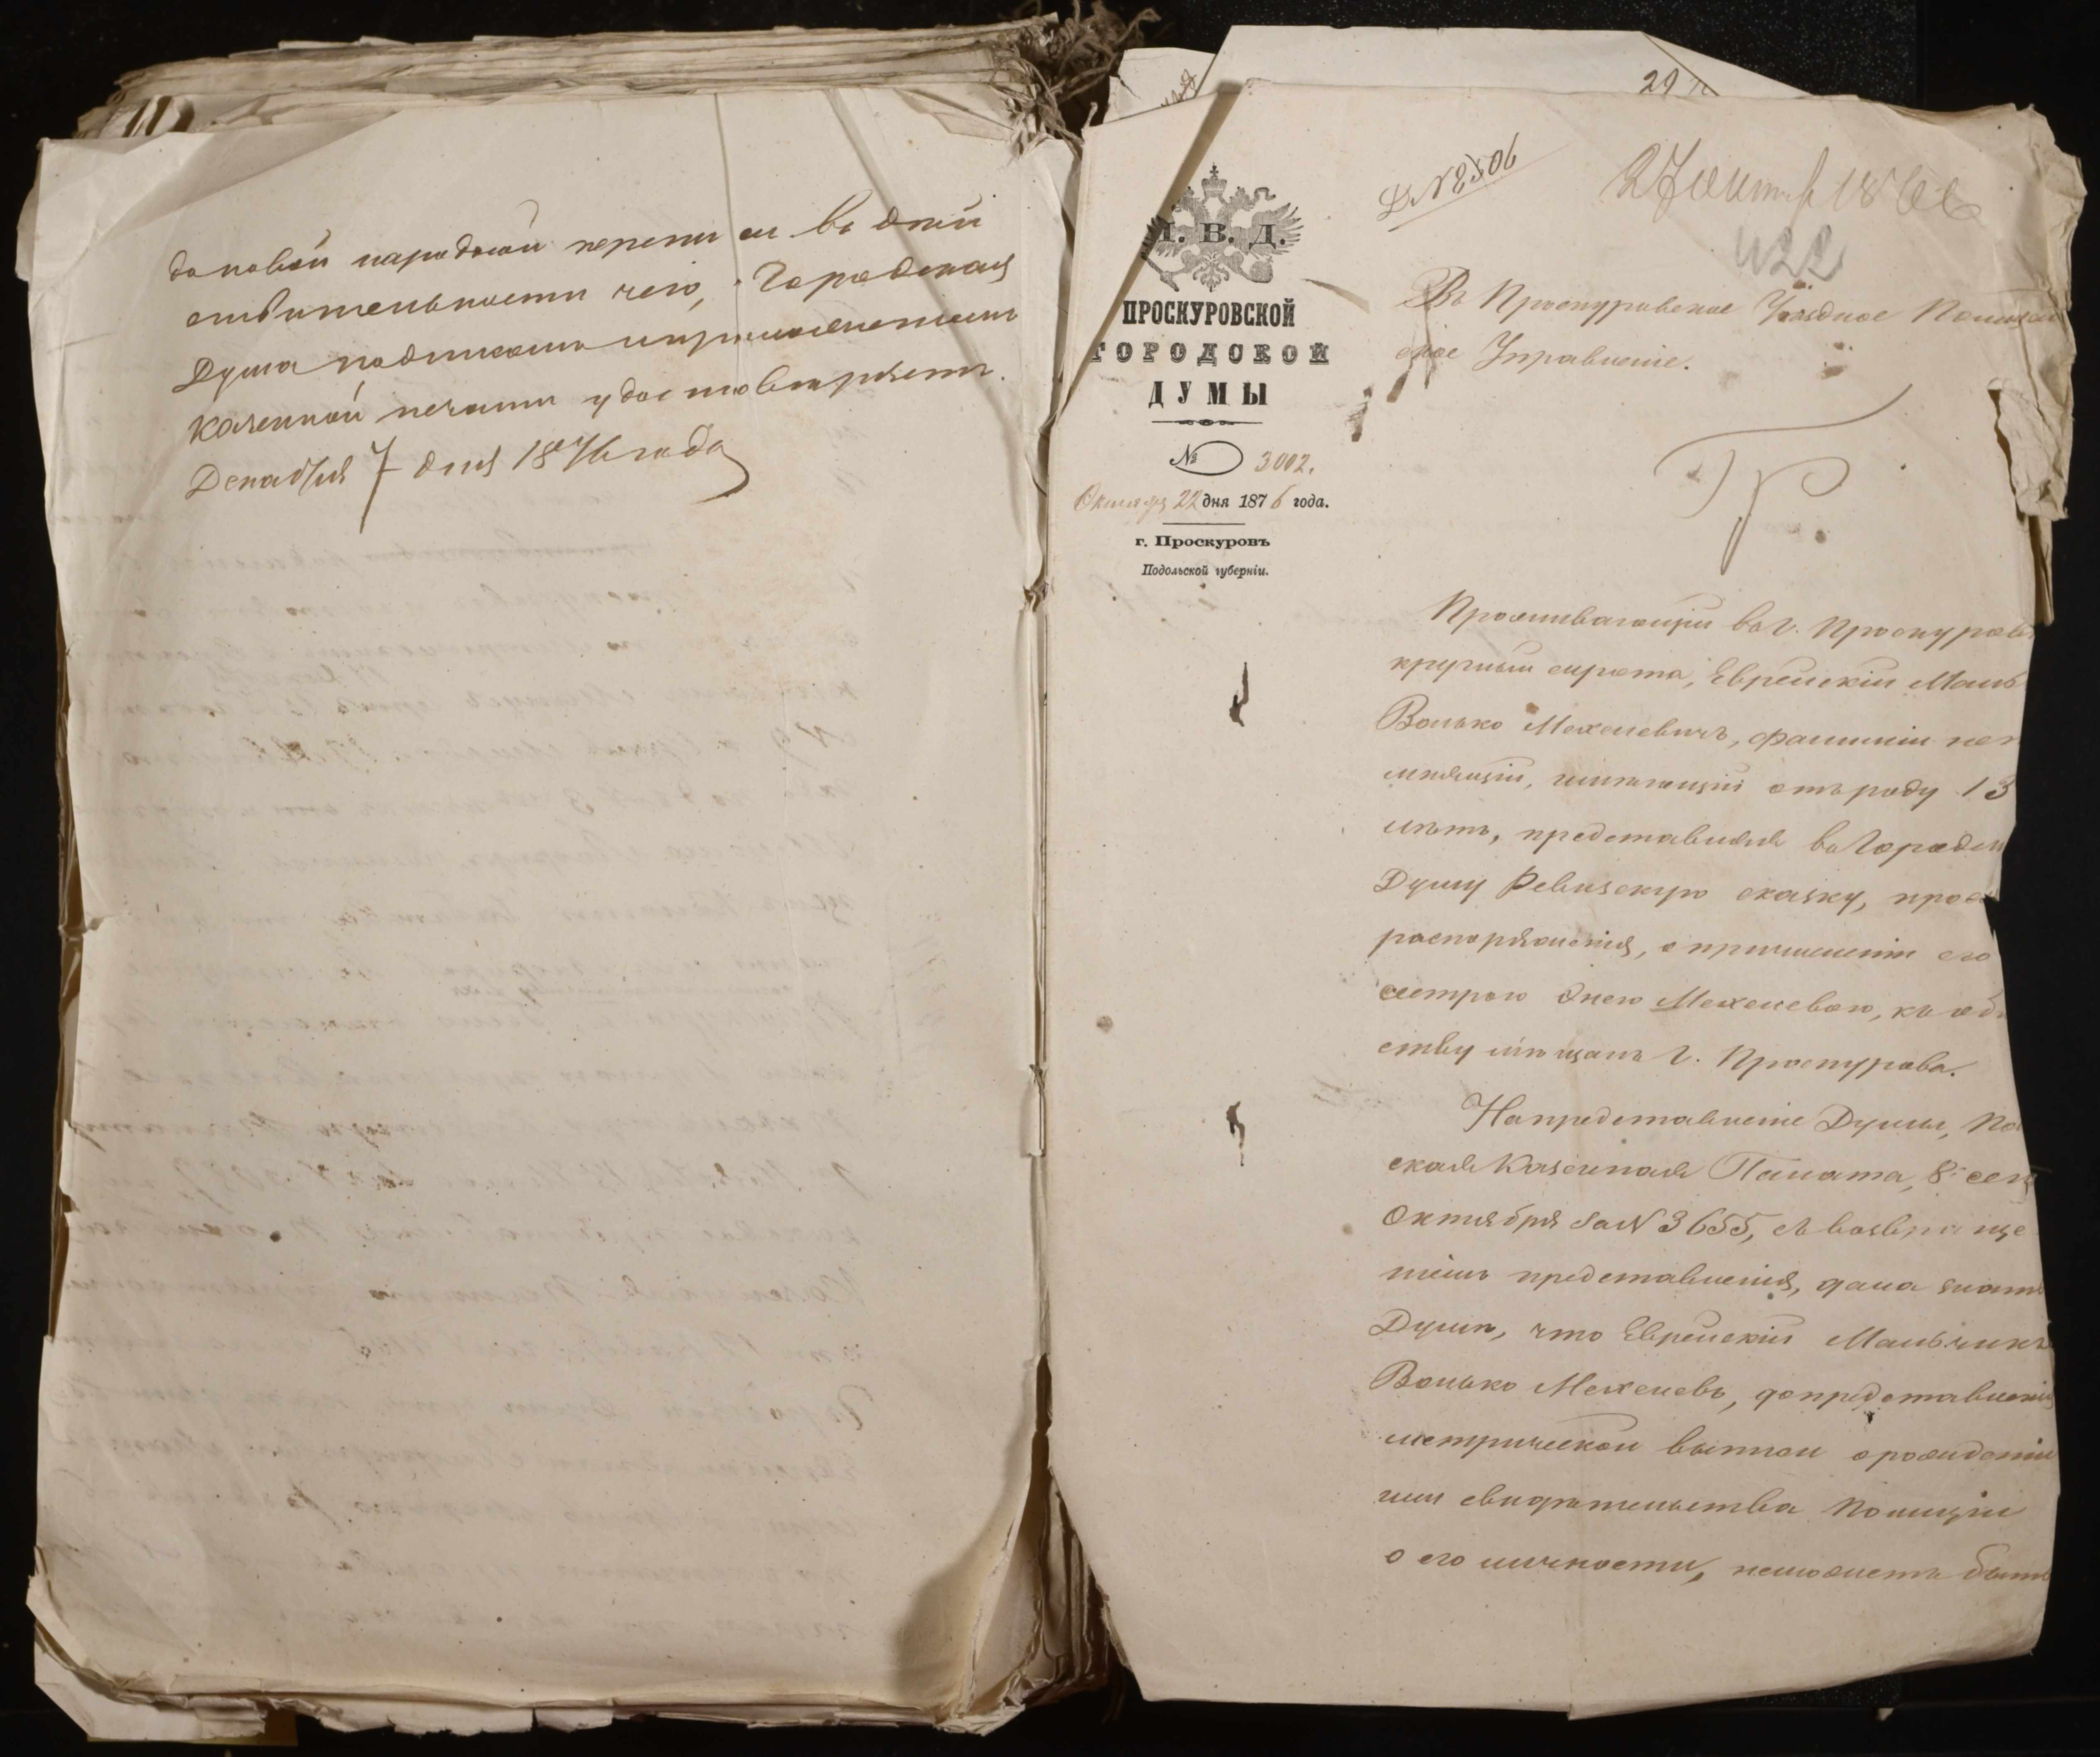 до новой народной переписи въ дѣй
ствительности чего, Городская
Дума подписомъ и приложеніемъ
казенной печати удостовѣряетъ.
Декабря 7 дня 1876 года
29
Д. № 2506
27 Октяб 1876
422
М. В. Д.
ПРОСКУРОВСКОЙ
ГОРОДСКОЙ
ДУМЫ
№ 3002.
Октября 22 дня 1876 года.
г. Проскуровъ
Подольской губерніи.
Въ Проскуровское Уѣздное Полицей
ское Управленіе.
Проживающій въ г. Проскуровѣ
круглый сирота, Еврейскій Маль
Волько Мехелевичъ, фамиліи неи
мѣющій, имѣющій отъ роду 13
лѣтъ, представляя въ Городск
Думу Ревизскую сказку, прос
распоряженія, о причисленіи его
сестрою Энею Мехелевою, къ об
ству мѣщанъ г. Проскурова.
На представленіе Думы, По
ская Казенная Палата, 8 сего
Октября за № 3655, съ возвраще
ніемъ представленія, дала знать
Думѣ, что Еврейскій Мальчикъ
Волько Мехелевъ, до представленія
метрической выписи о рожденіи
или свидѣтельства Полиціи
о его личности, неможетъ быть